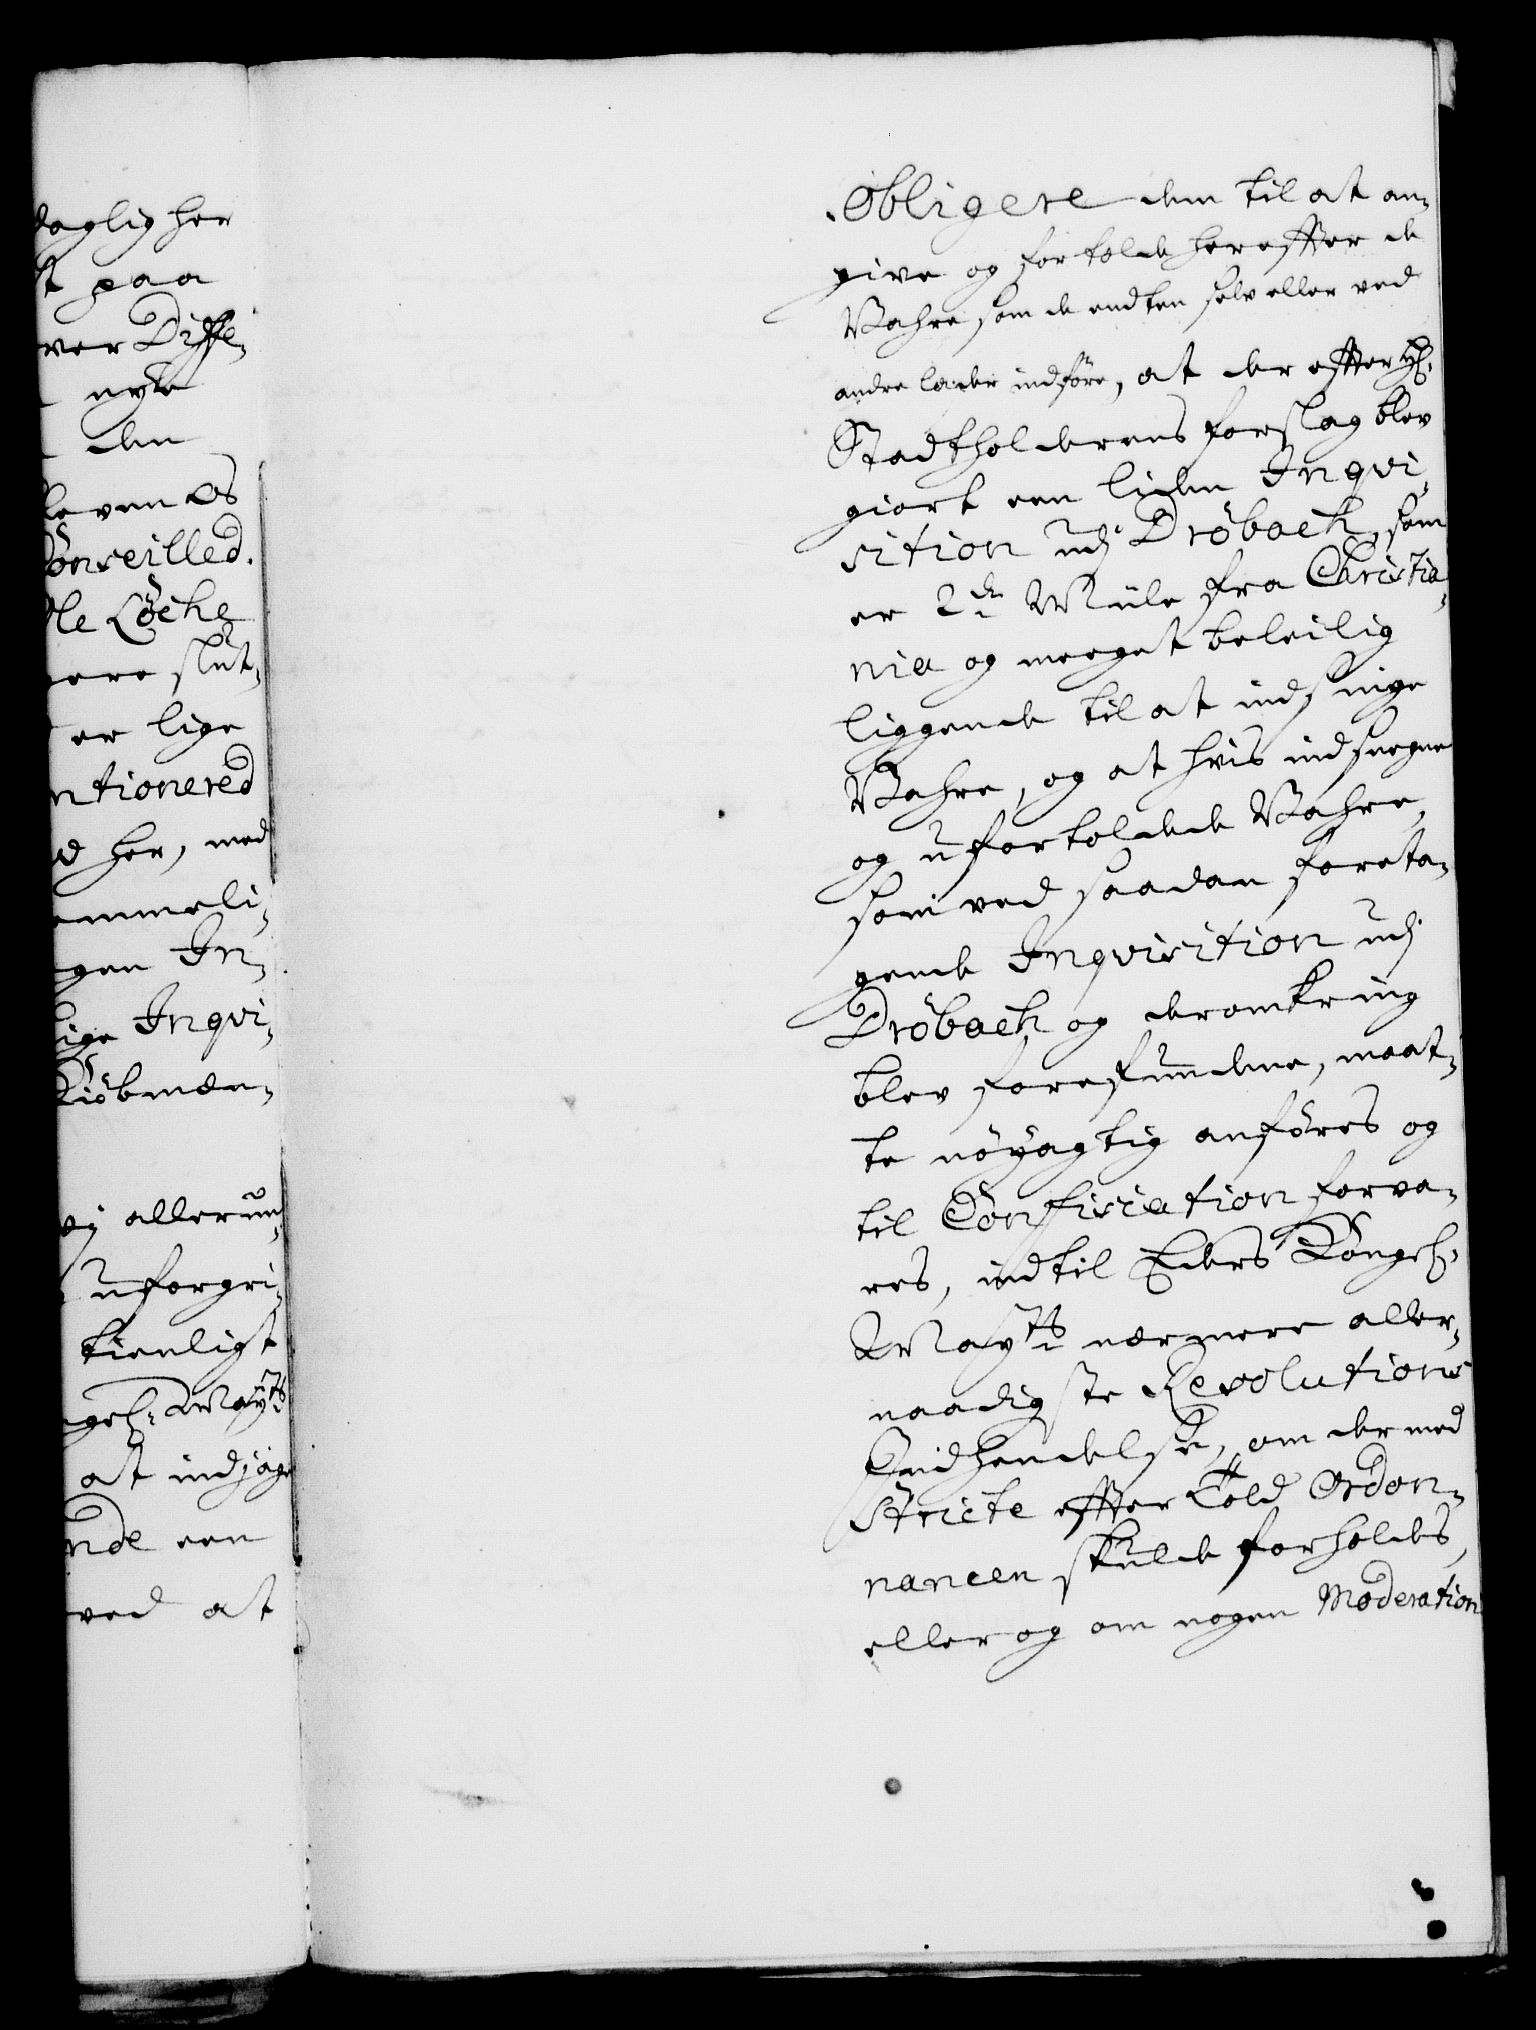 daglig her
t paa
ver Diffe-
nye
den
leven Os
Conseilled.
le Löche
ere slut-
er lige
ntionered
d her, med
emmeli-
gen In-
lige Inqvi-
Kiöbmæn-
allerun-
uforgri-
tienligst
gel: Mayts
at indjage
nde een
ved at
Obligere dem til at an-
give og fortolde herefter de
Vahre som de endten self eller ved
andre lader indföre, at der efter
Stadtholderens forslag blev
giort een liden Inqvi-
sition udj Dröback, som
er 2de Miile fra Christia-
nia og meeget beleilig
liggende til at indsnige
Vahre, og at hvis indsnegne
og ufortoldede Vahre,
som ved saadan foreta-
gende Inqvisition udj
Dröback og deromkring
blev forefundene, maat-
te nöyagtig anföres og
til Confiscation forva-
res, indtil Eders Kongel:
Mayts nærmere aller-
naadigste Resolutions
Indhendelse, om der med
stricte efter Told Ordon-
nancen skulde forholdes,
eller og om nogen Moderation